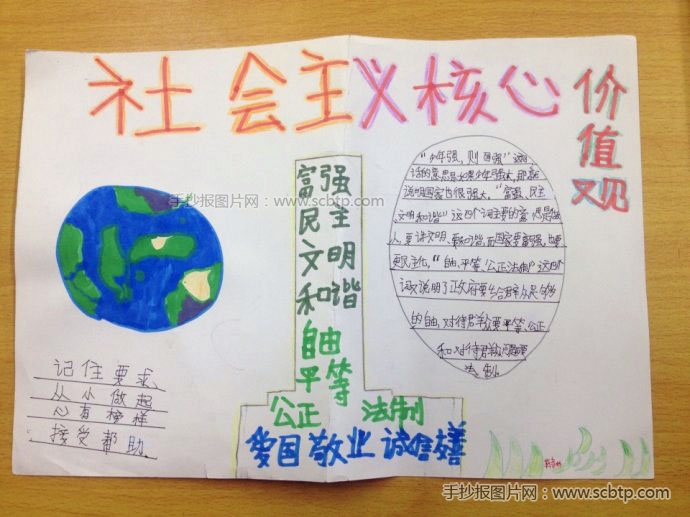 社会主义核心价值观
手抄报图片网:www.scbtp.com
富强
民主
文明
和谐
自由
平等
公正 法制
爱国 敬业 诚信 友善
记住要求
从小做起
心有榜样
接受帮助
"少年强，则国强"这句
话的意思是如果少年强大，那就
说明国家也很强大。"富强、民主
文明和谐"这四个词主要的 意思是
人要讲文明、要和谐，而国家要富强，也要
更民主化。"自由、平等、公正法制"这四个
词又说明了政府要给群众足够
的自由，对待群众要平等、公正
和对待群众问题要
法制
手抄报图片网:www.scbtp.com